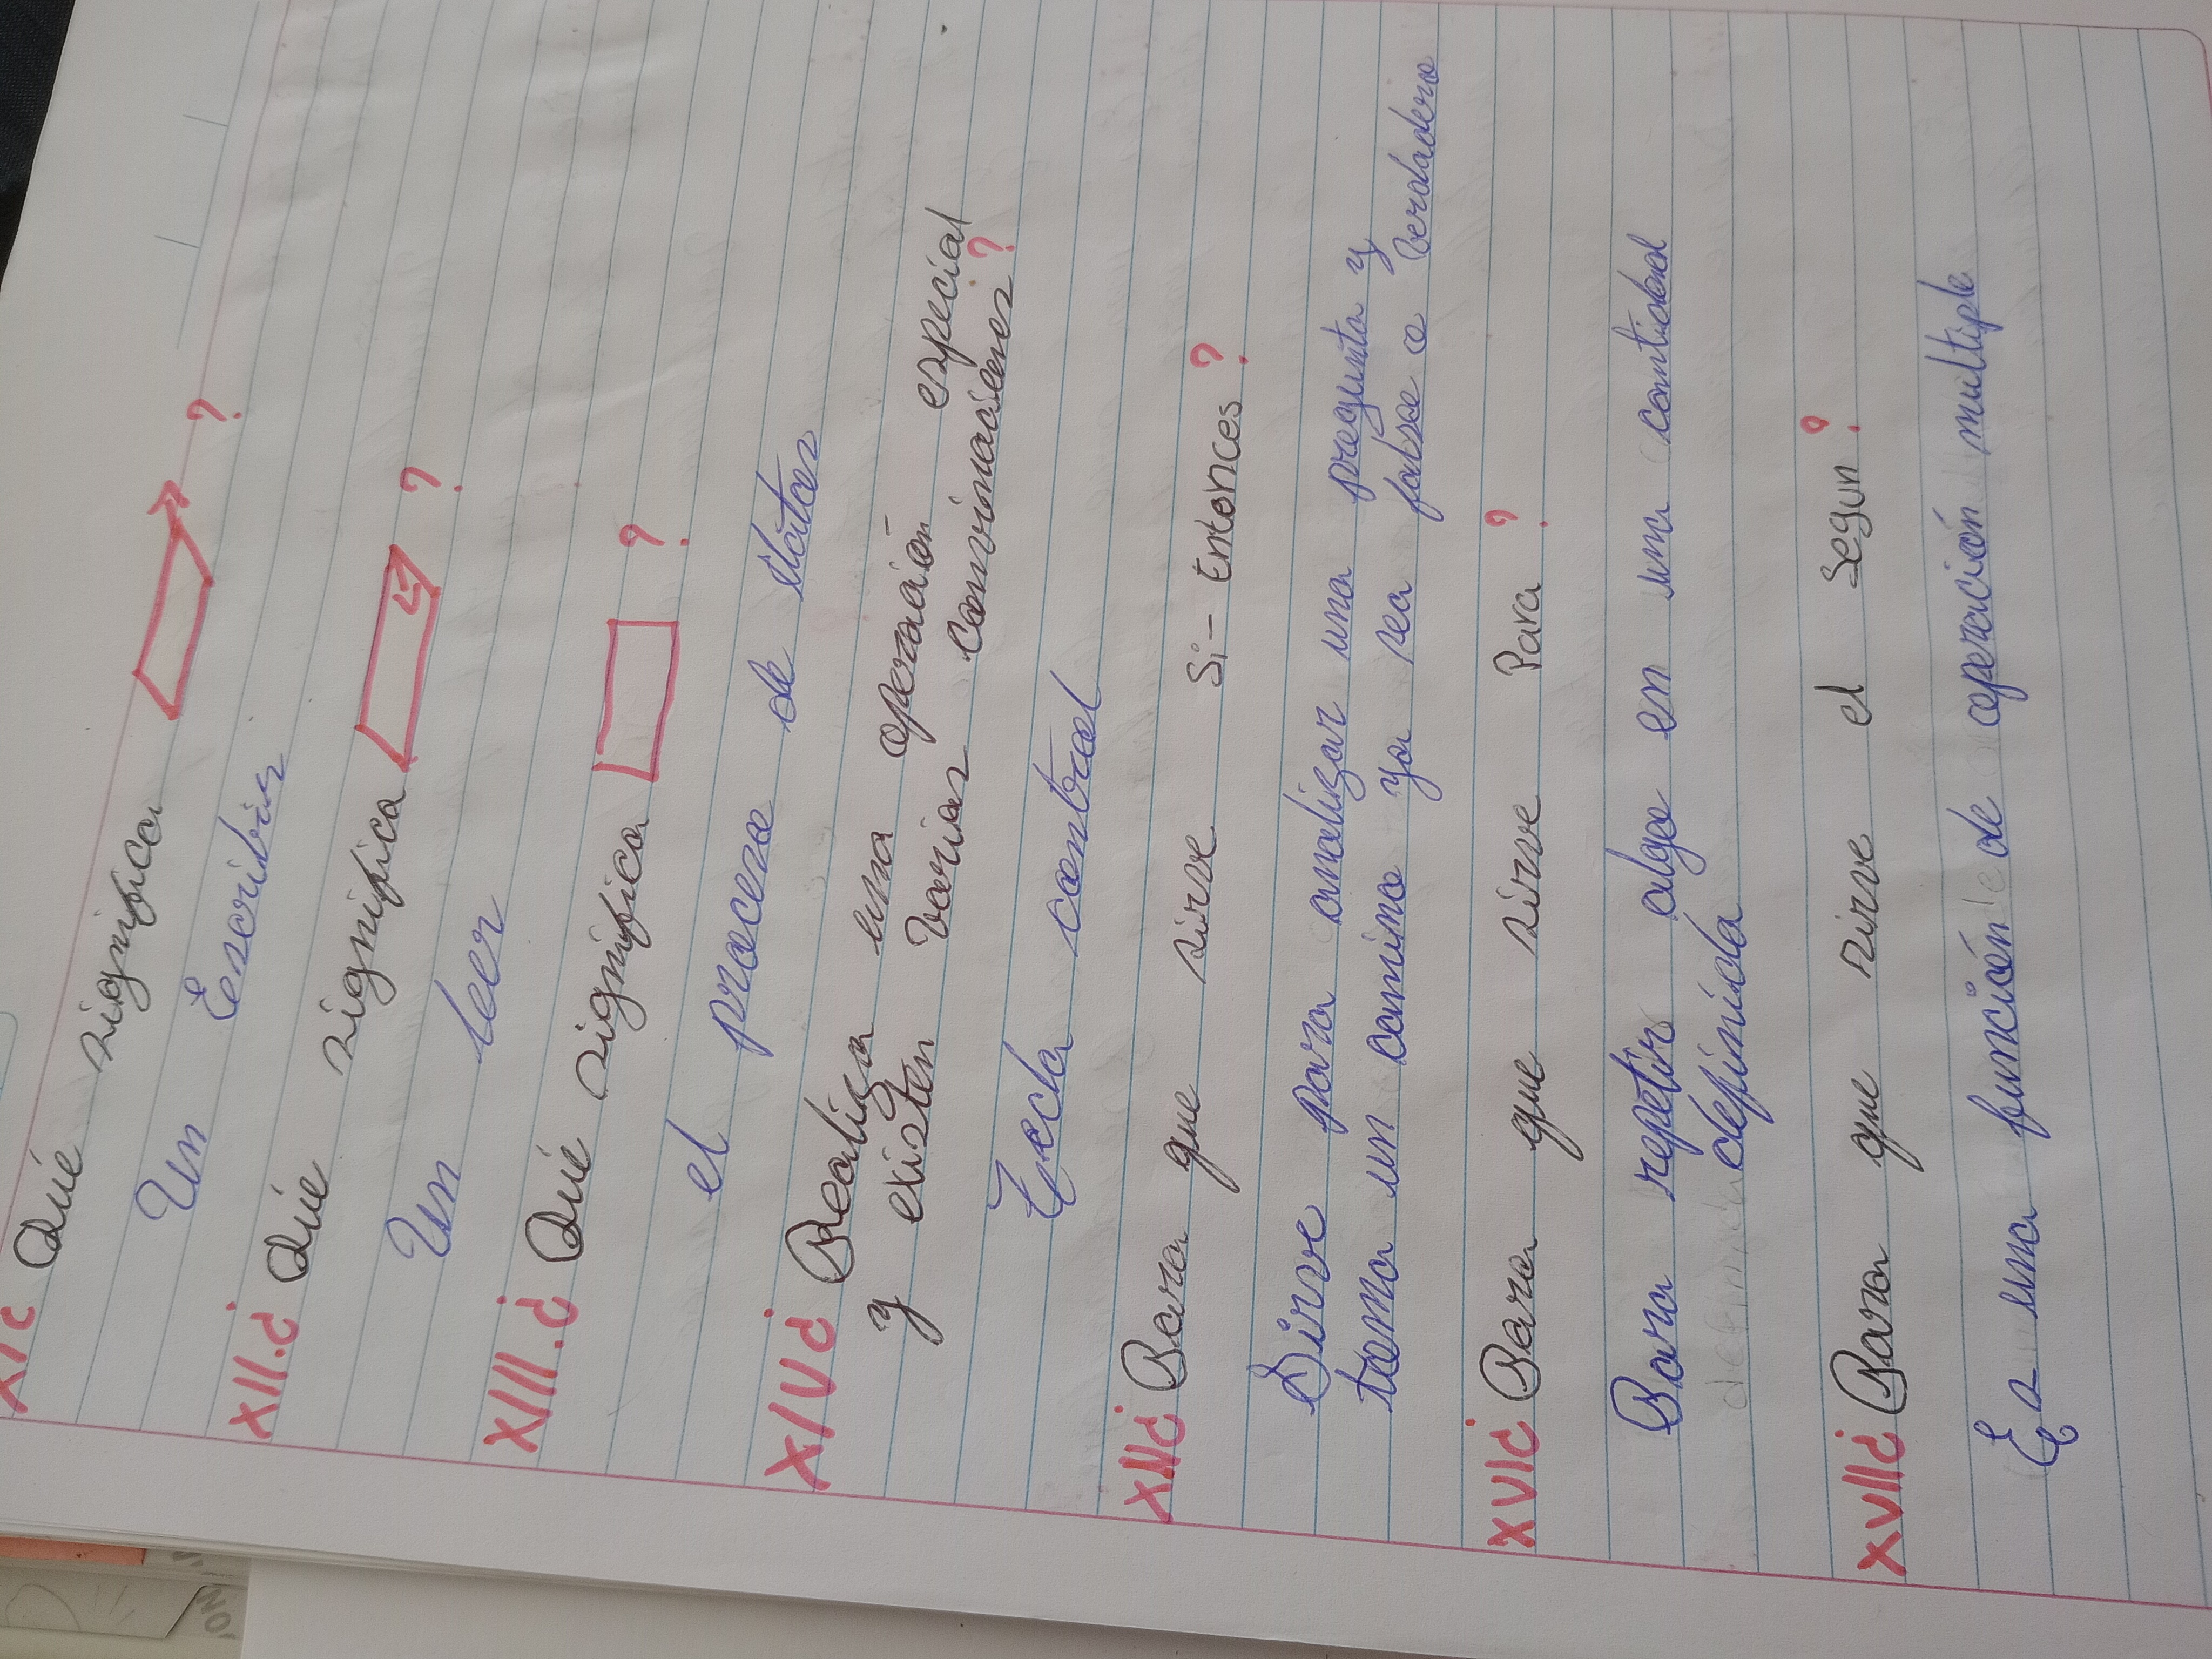 ¿Qué significa ?
Un Escribir
XII.¿ Qué significa ?
Un leer
XIII.¿ Qué significa ?
el proceso de datos
XIV¿ Realiza una operación especial
y existen varias convinaciones?
Tecla control
¿Para que sirve Si-Entonces?
Sirve para analizar una pregunta y
toma un camino ya sea falso o verdadero
XVI¿ Para que sirve Para ?
Para repetir algo en una cantidad
definida
XVII¿ Para que sirve el Segun?
Es una función de operación multiple